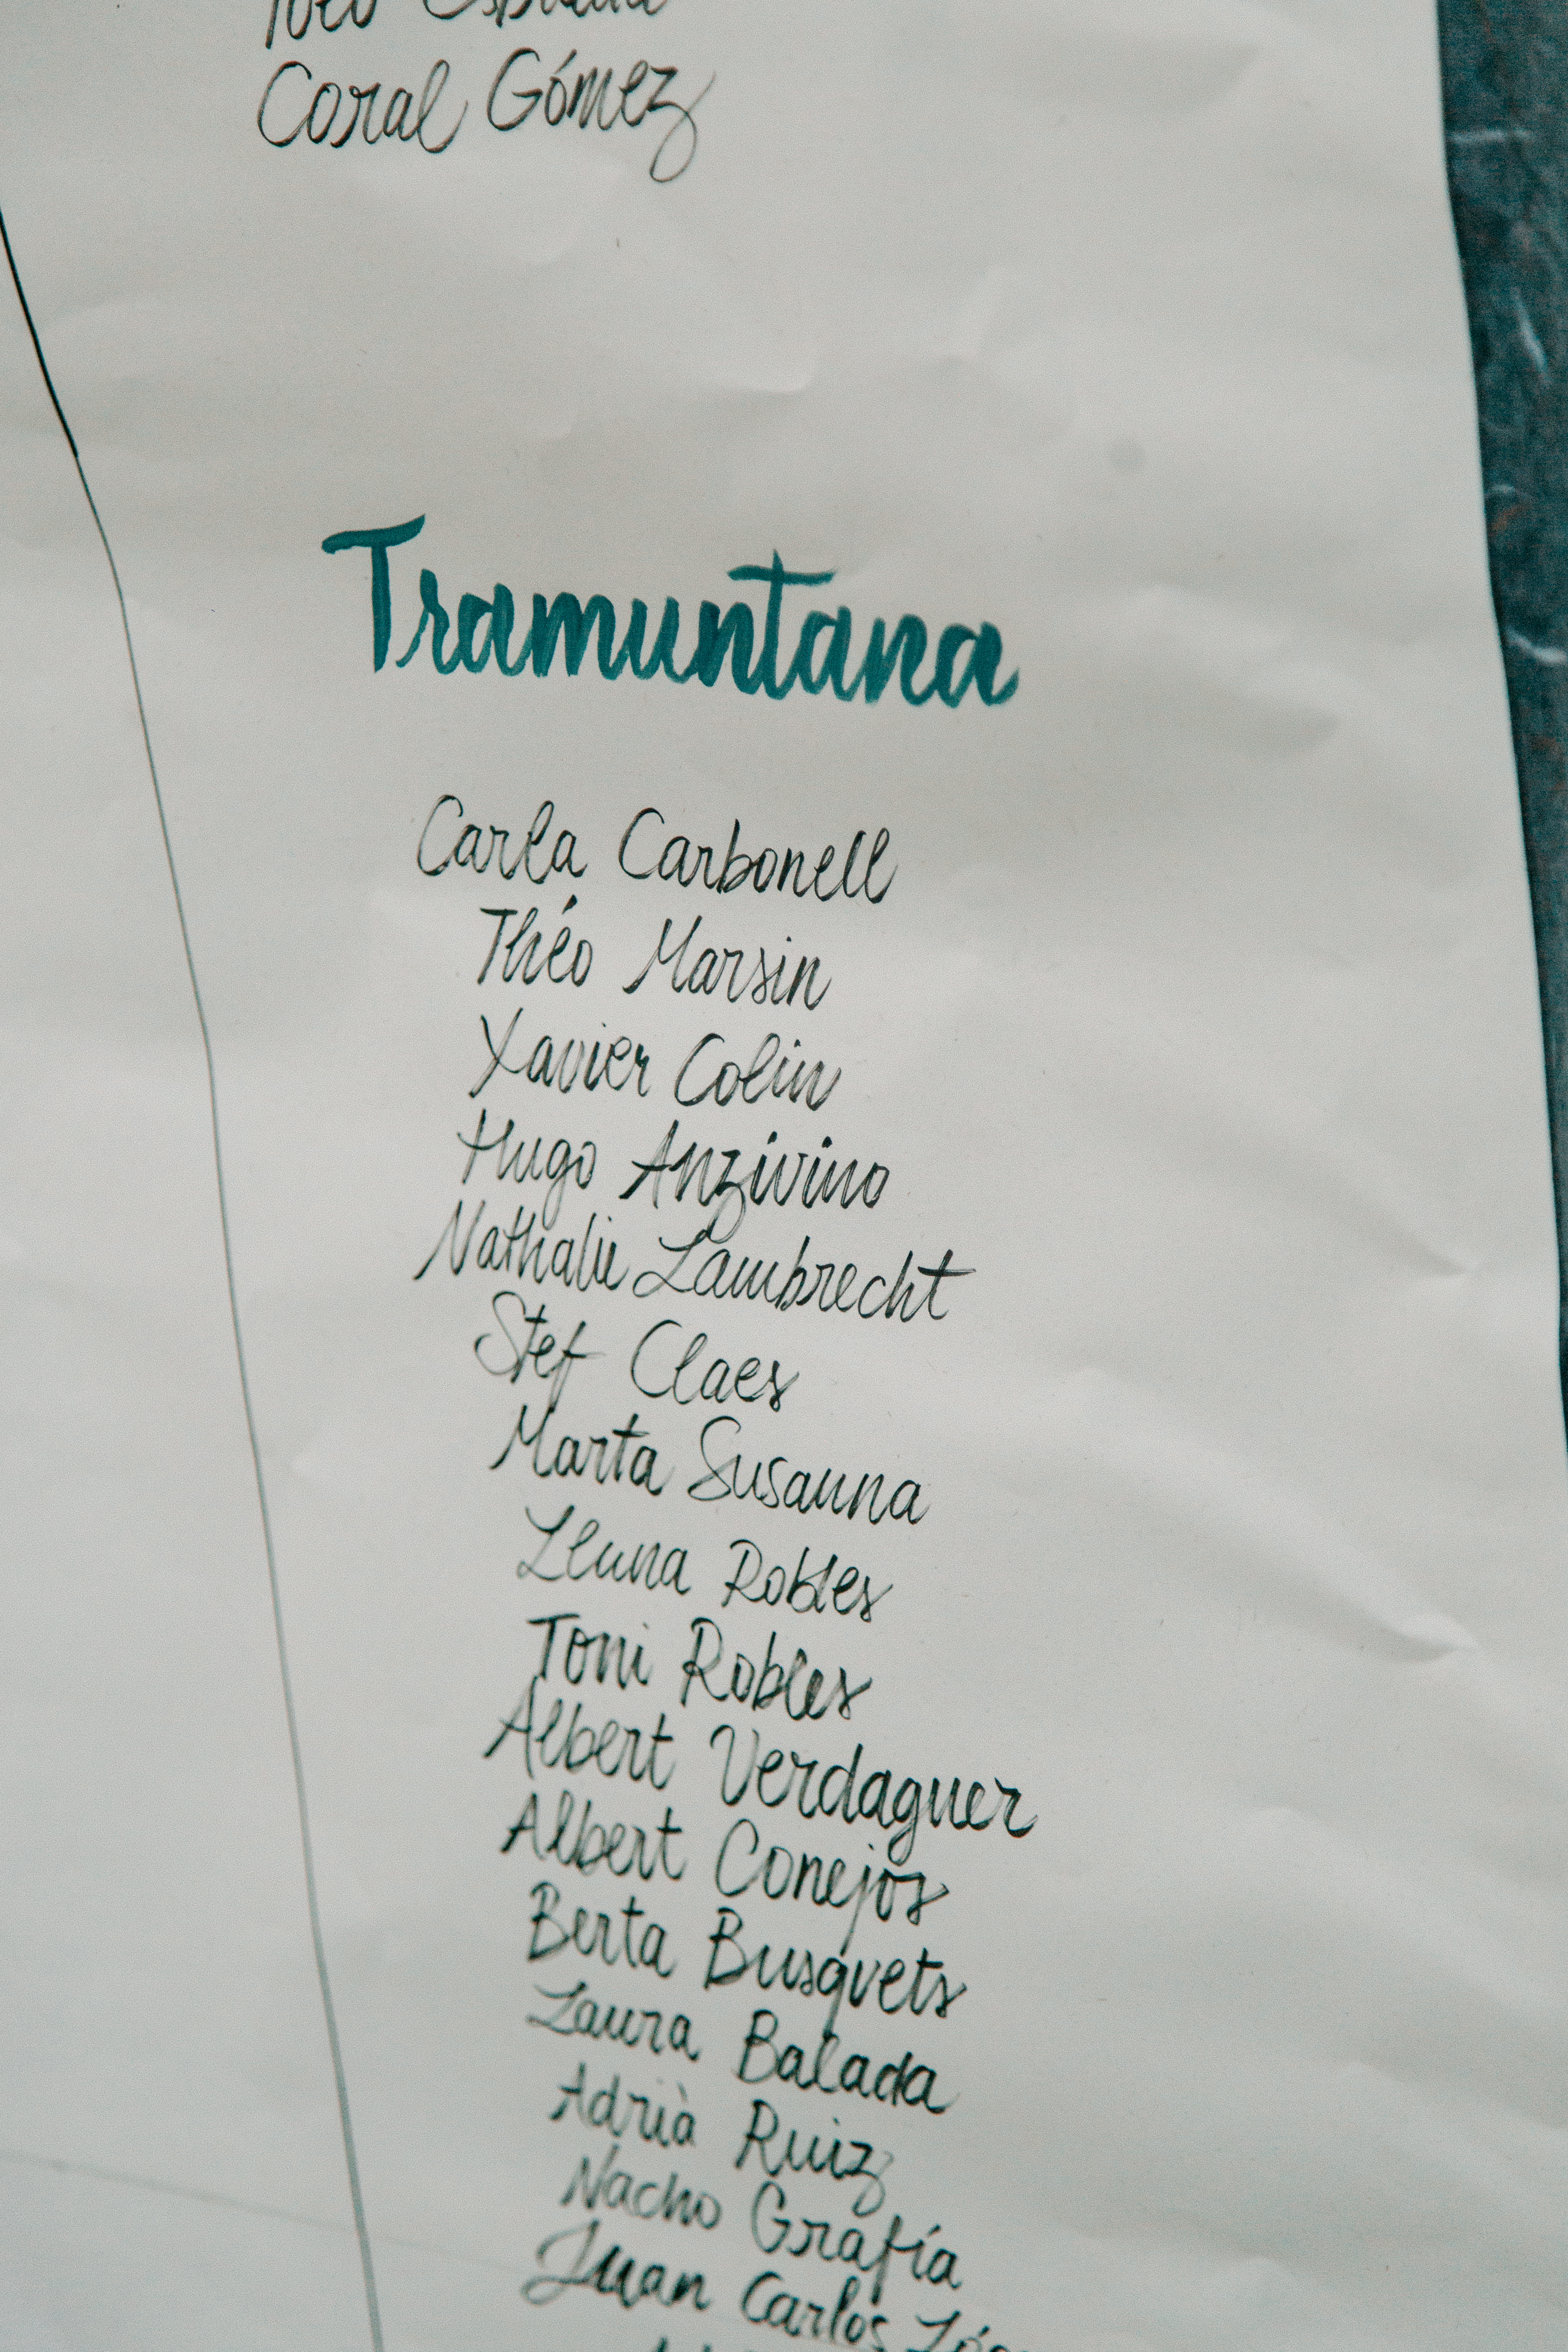 Coral Gómez
Tramuntana
Carla Carbonell
Théo Marsin
Xavier Colin
Hugo Anzivino
Nathalie Lambrecht
Stef Claes
Marta Susanna
Lluna Robles
Toni Robles
Albert Verdaguer
Albert Conejos
Berta Busquets
Laura Balada
Adrià Ruiz
Nacho Grafía
Juan Carlos